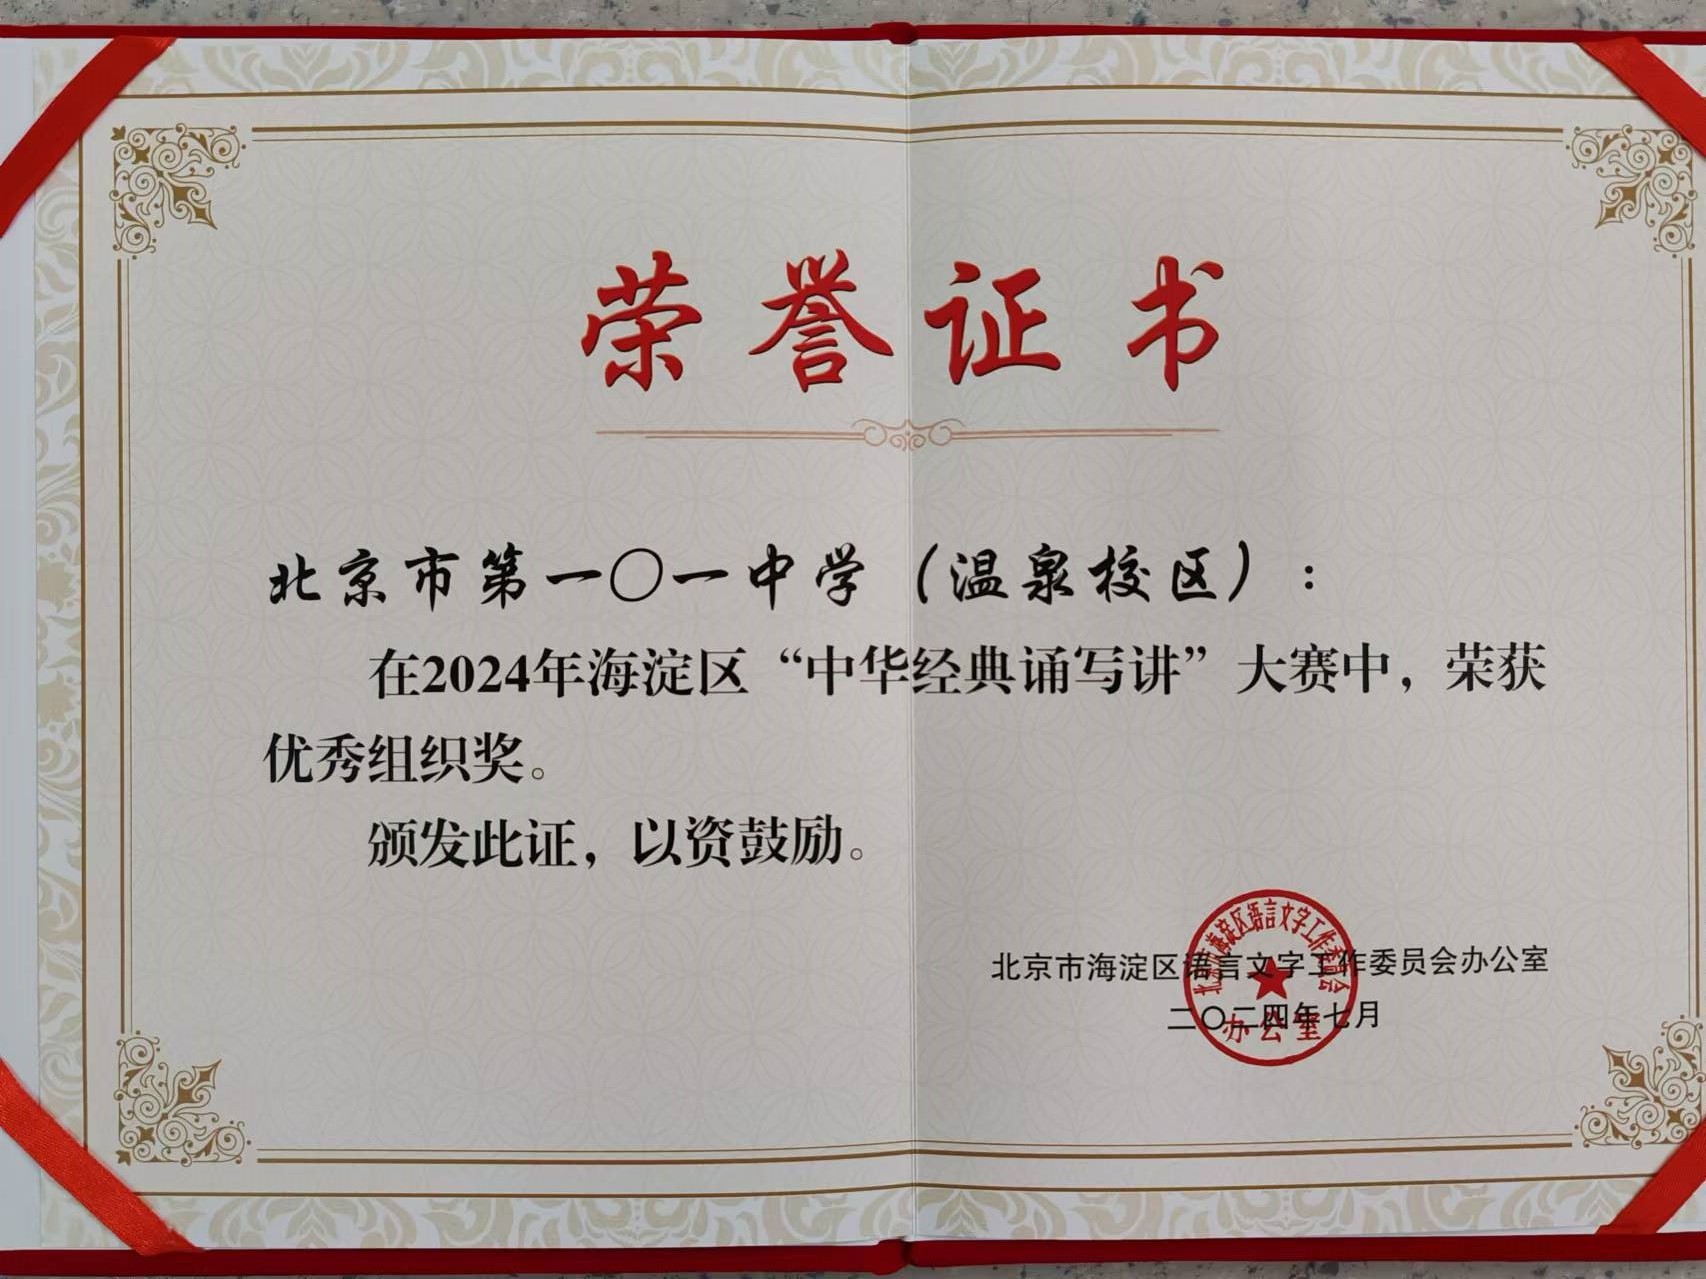 荣誉证书
北京市第一〇一中学（温泉校区）：
在2024年海淀区“中华经典诵写讲”大赛中，荣获
优秀组织奖。
颁发此证，以资鼓励。
北京市海淀区语言文字工作委员会办公室
二〇二四年七月
北京市海淀区语言文字工作委员会
办公室